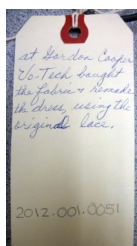 at Gordon Cooper
Vo-Tech bought
the fabric & remade
the dress, using the
original lace.
2012.001.0051